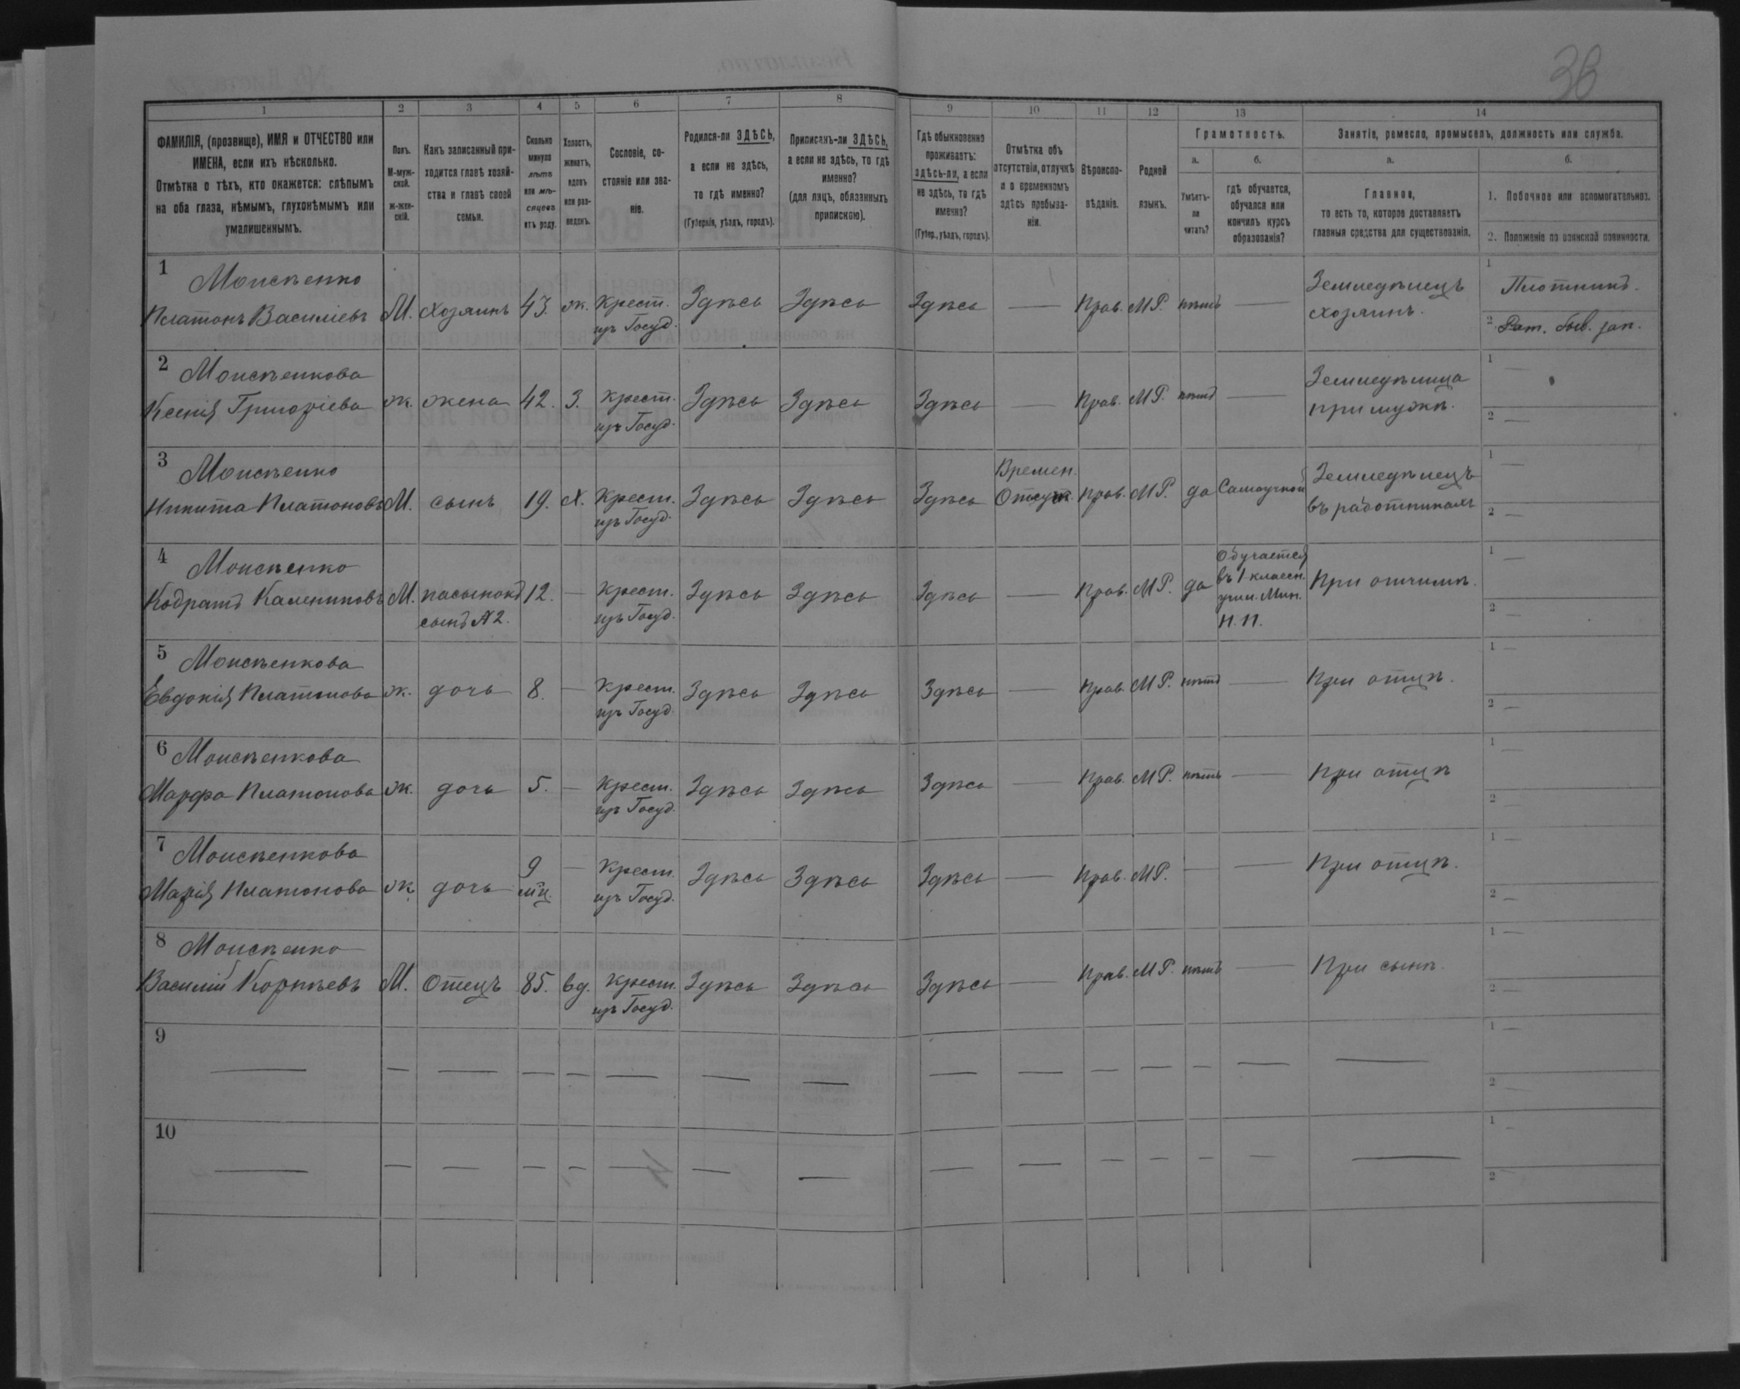 38
1 2 3 4 5 6 7 8 9 10 11 12 13 14
ФАМИЛІЯ, (прозвище), ИМЯ и ОТЧЕСТВО или ИМЕНА, если ихъ нѣсколько.
Отмѣтка о тѣхъ, кто окажется: слѣпымъ на оба глаза, нѣмымъ, глухонѣмымъ или умалишеннымъ.
Полъ. М-муж-ской. Ж-жен-скій.
Какъ записанный при-ходится главѣ хозяй-ства и главѣ своей семьи.
Сколько минуло лѣтъ или мѣ-сяцевъ отъ роду.
Холостъ, женатъ, вдовъ или раз-веденъ.
Сословіе, со-стояніе или зва-ніе.
Родился-ли ЗДѢСЬ, а если не здѣсь, то гдѣ именно?
(Губернія, уѣздъ, городъ).
Приписанъ-ли ЗДѢСЬ, а если не здѣсь, то гдѣ именно?
(для лицъ, обязанныхъ припискою).
Гдѣ обыкновенно проживаетъ: здѣсь-ли, а если не здѣсь, то гдѣ именно?
(Губер., уѣздъ, городъ).
Отмѣтка объ отсутствіи, отлучкѣ и о временномъ здѣсь пребыва-ніи.
Вѣроиспо-вѣданіе.
Родной языкъ.
Грамотность.
а. Умѣетъ-ли читать?
б. гдѣ обучается, обучался или кончилъ курсъ образованія?
Занятіе, ремесло, промыселъ, должность или служба.
а. Главное, то есть то, которое доставляетъ главныя средства для существованія.
б.
1. Побочное или вспомогательное.
2. Положеніе по воинской повинности.
1 Моисѣенко 1
Платонъ Василіевъ М. хозяинъ 43. ж. Крест. изъ Госуд. Здѣсь Здѣсь Здѣсь — Прав. М.Р. нѣтъ — Земледѣлецъ хозяинъ. Плотникъ.
2 Рат. быв. зап.
2 Моисѣенкова 1 —
Ксенія Григоріева ж. жена 42. З. Крест. изъ Госуд. Здѣсь Здѣсь Здѣсь — Прав. М.Р. нѣтъ — Земледѣлица при мужѣ.
2 —
3 Моисѣенко 1 —
Никита Платоновъ М. сынъ 19. Х. Крест. изъ Госуд. Здѣсь Здѣсь Здѣсь Времен. Отсут. Прав. М.Р. да Самоучкой Земледѣлецъ въ работникахъ
2 —
4 Моисѣенко 1 —
Кодратъ Калениковъ М. пасынокъ сынъ №2. 12. — Крест. изъ Госуд. Здѣсь Здѣсь Здѣсь — Прав. М.Р. да Обучается въ 1 классн. учил. Мин. Н. П. При отчимѣ.
2 —
5 Моисѣенкова 1 —
Евдокія Платонова ж. дочь 8. — Крест. изъ Госуд. Здѣсь Здѣсь Здѣсь — Прав. М.Р. нѣтъ — При отцѣ.
2 —
6 Моисѣенкова 1 —
Марфа Платонова ж. дочь 5. — Крест. изъ Госуд. Здѣсь Здѣсь Здѣсь — Прав. М.Р. нѣтъ — При отцѣ
2 —
7 Моисѣенкова 1 —
Марія Платонова ж. дочь 9 мц. — Крест. изъ Госуд. Здѣсь Здѣсь Здѣсь — Прав. М.Р. — — При отцѣ.
2 —
8 Моисѣенко 1 —
Василій Корнѣевъ М. Отецъ 85. вд. Крест. изъ Госуд. Здѣсь Здѣсь Здѣсь — Прав. М.Р. нѣтъ — При сынѣ.
2 —
9 — — — — — — — — — — — — — — — 1 —
2 —
10 — — — — — — — — — — — — — — — 1 —
2 —